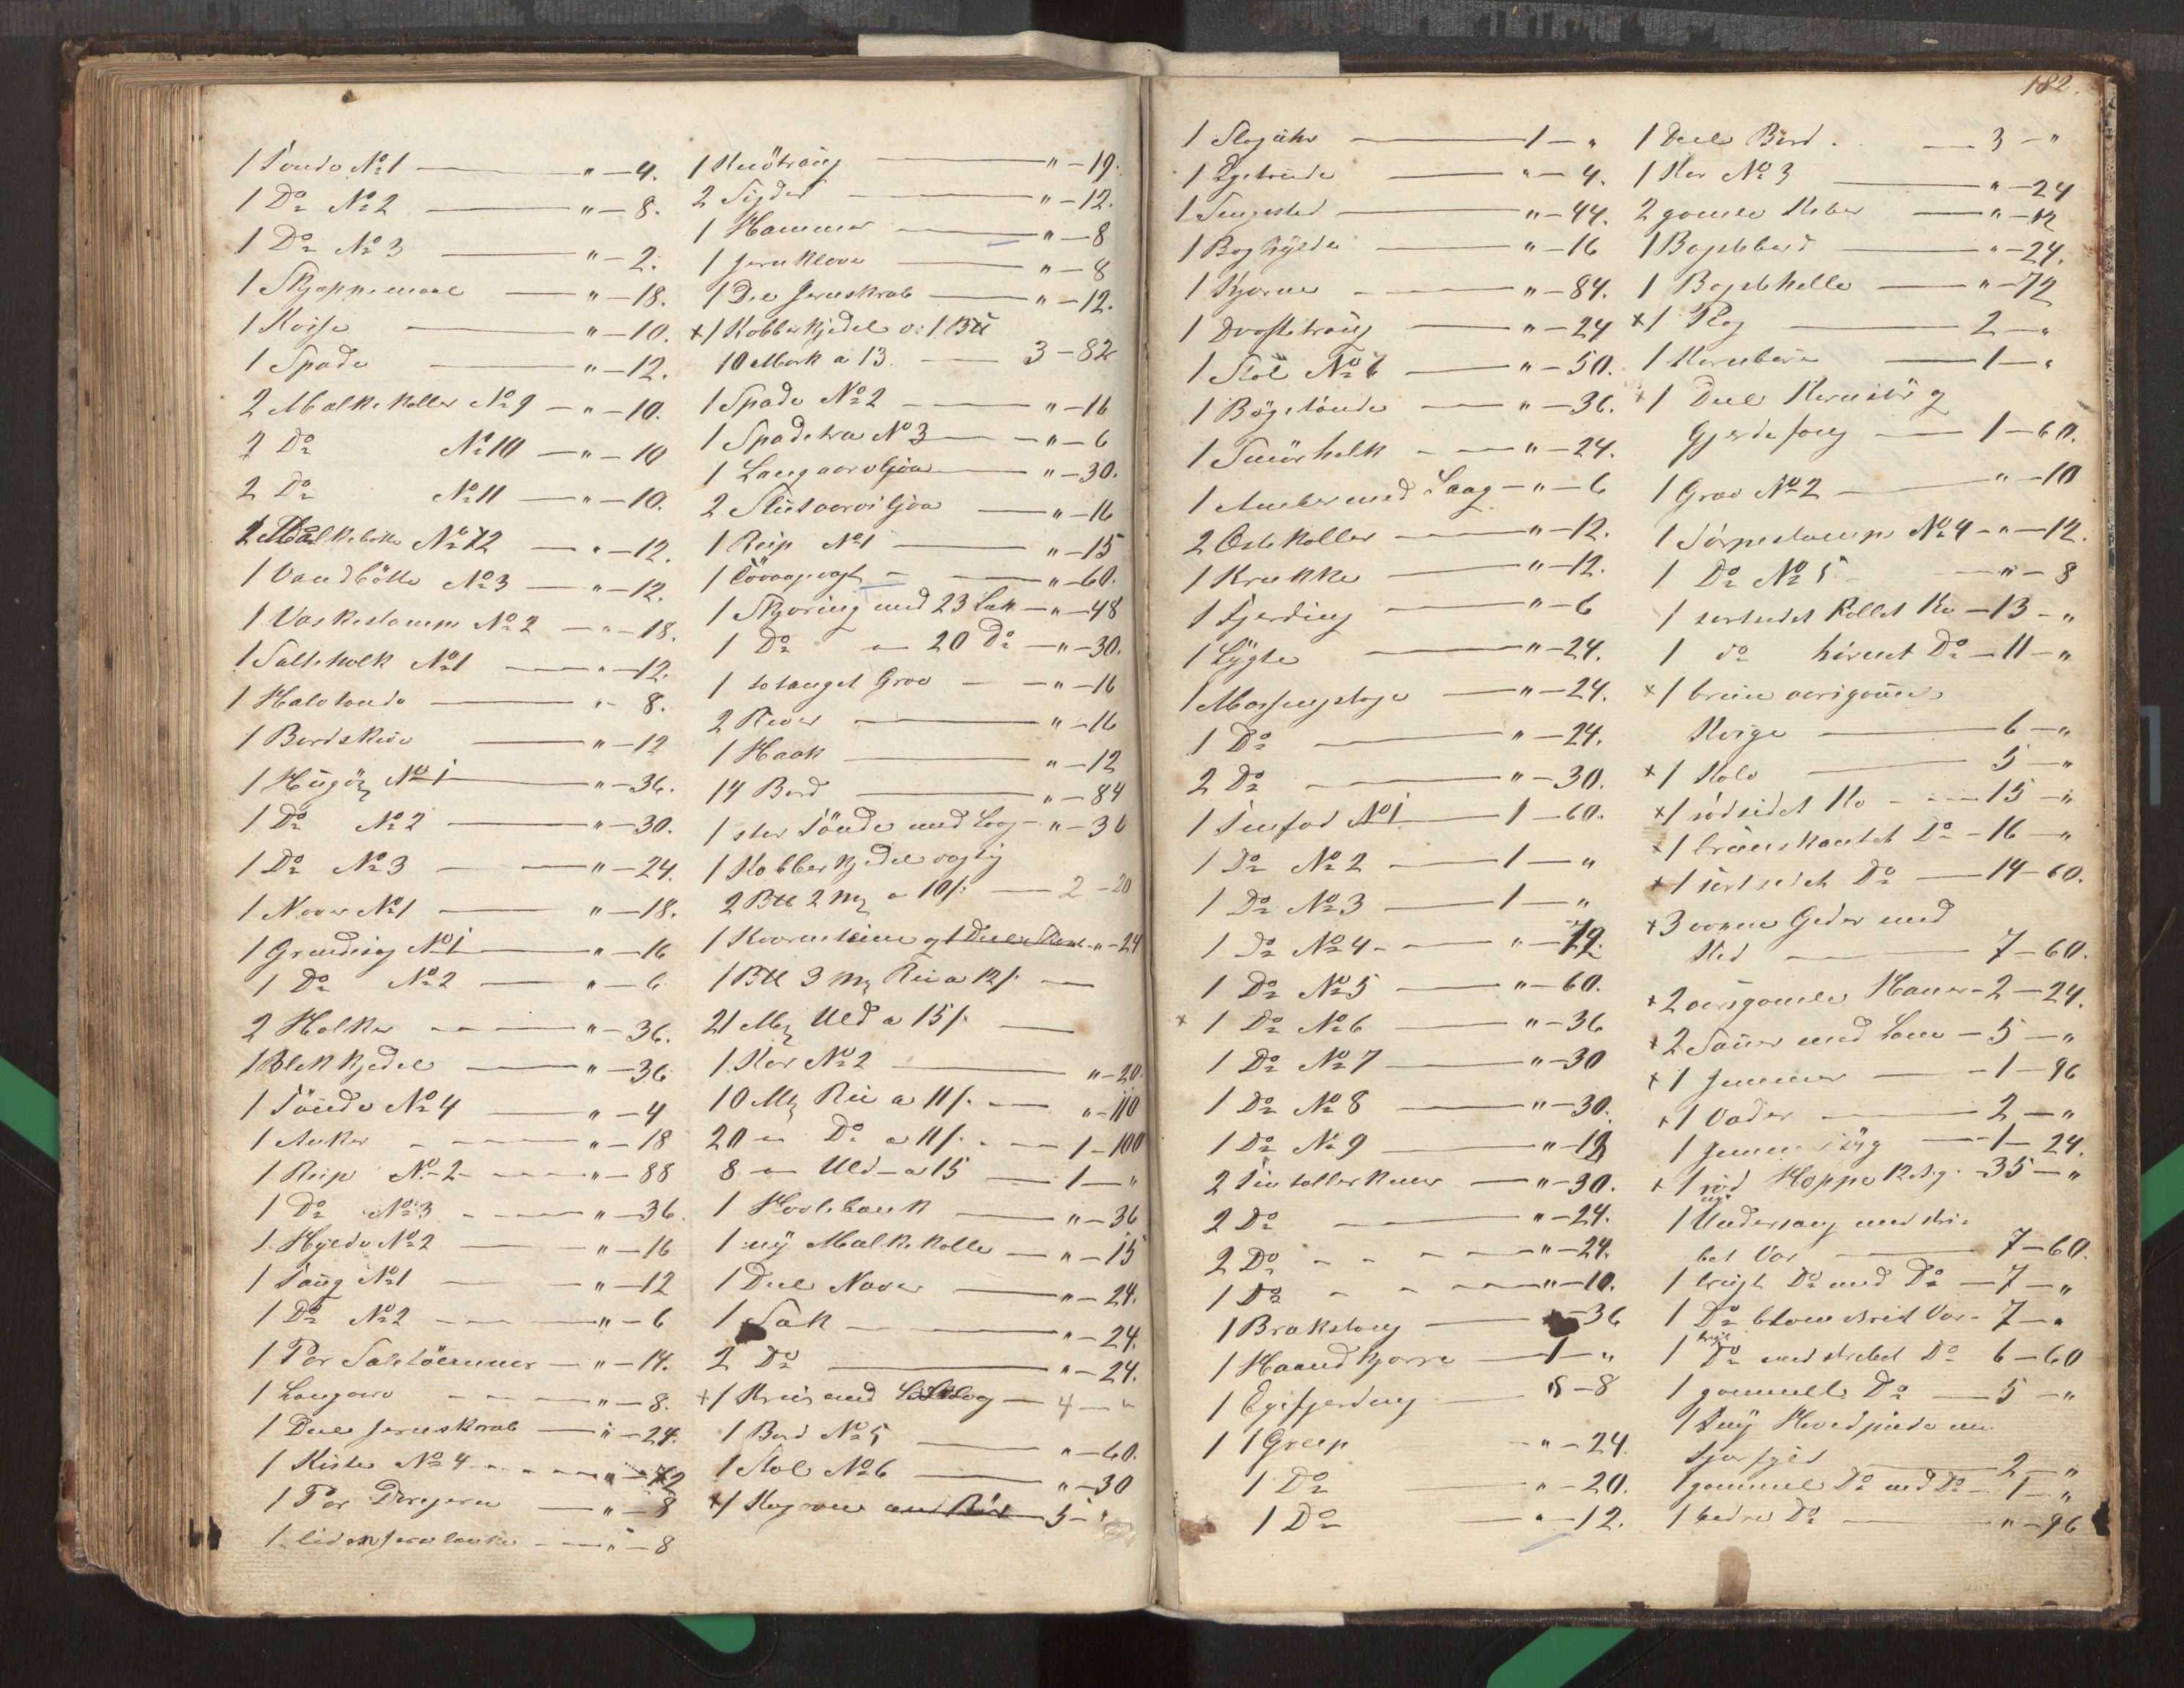 1 Tønde No 1 — " — 4.
1 Do No 2 — " — 8.
1 Do No 3 — " — 2.
1 Skjæppemaal — " — 18.
1 — " — 10.
1 Spade — " — 12.
2 Malkekoller No 9 — " — 10.
2 Do No 10 — " — 10
2 Do No 11 — " — 10.
No 12 — " — 12.
1 Vandbøtte No 3 — " — 12.
1 Vaskestamp No 2 — " — 18.
1 Salteholk No 1 — " — 12.
1 Halvtønde — " — 8.
1 Bordskive — " — 12
1 No 1 — " — 36.
1 Do No 2 — " — 30.
1 Do No 3 — " — 24.
1 Naver No 1 — " — 18.
1 Grindsag No 1 — " — 16
1 Do No 2 — " — 6
2 Holker — " — 36.
1 Blekkjedel — " — 36
1 Tønde No 4 — " — 4
1 Anker — " — 18
1 Reip No 2 — " — 88
1 Do No 3 — " — 36.
1 Hylde No 2 — " — 16
1 Toug No 1 — " — 12
1 Do No 2 — " — 6
1 Par Saletømmer — " — 14.
1 Langorv — " — 8.
1 Deel Jernskrab — " — 24.
1 Kiste No 4 — " — 72
1 Par — " — 8
1 liden Jernlænke — " — 8
1 Knøtraug — " — 19.
2 Sigder — " — 12.
1 Hammer — " — 8
1 Jernklove — " — 8
1 Deel Jernskrab — " — 12.
x 1 Kobberkjedel v: 1 Btl
10 Mark a 13. — 3 — 82
1 Spade No 2 — " — 16
1 Spadetræ No 3 — " — 6
1 Langorvsljaa — " — 30.
2 Stutorvsljaa — " — 16
1 Reip No 1 — " — 15
1 — " — 60.
1 Skjøring med 23 — " — 48
1 Do — 20 Do — " — 30.
1 totanget Grev — " — 16
2 River — " — 16
1 Haak — " — 12
14 Bord — " — 84
1 stor Tønde med Laag — " — 36
1 Kobberkjedel
2 Btl 2 Mk a 10/: — 2 — 20
1 Kværnsteen og 1 Deel — " — 24
1 Btl 3 Mk a 12/: —
21 Mk Uld a 15/: —
1 Kar No 2 — " — 20.
10 Mk a 11/: — " — 110
20 — Do a 11/: — 1 — 100
8 — Uld a 15 — 1 — "
1 Høvlebænk — " — 36
1 ny Malkekolle — " — 15
1 Deel Naver — " — 24.
1 Sæk — " — 24.
2 Do — " — 24.
x 1 med — 4 — "
1 Bord No 5 — " — 60.
1 Stol No 6 — " — 30
x 1 — 5 — "
182.
1 — 1 — "
1 — " — 4.
1 Sengested — " — 44.
1 Boghylde — " — 16
1 Kjærne — " — 84.
1 Drøftetraug — " — 24
1 Stol No 6 — " — 50.
1 Bøgetønde — " — 36.
1 Smørholk — " — 24.
1 Amber med Laag — " — 6
2 Ostekoller — " — 12.
1 Krukke — " — 12.
1 Fjerding — " — 6
1 Lygte — " — 24.
1 Messingstage — " — 24.
1 Do — " — 24.
2 Do — " — 30.
1 Tinfad No 1 — 1 — 60.
1 Do No 2 — 1 — "
1 Do No 3 — 1 — "
1 Do No 4 — " — 72.
1 Do No 5 — " — 60.
x 1 Do No 6 — " — 36
1 Do No 7 — " — 30
1 Do No 8 — " — 30.
1 Do No 9 — " — 12
2 Tintallerkener — " — 30.
2 Do — " — 24.
2 Do — " — 24.
1 Do — " — 10.
1 Brakstang — " — 36
1 Haandkjærre — 1 — "
1 Egefjerding — " — 8
1 Greep — " — 24.
1 Do — " — 20.
1 Do — " — 12.
1 Deel Bord. — 3 — "
1 Kar No 3 — " — 24
2 gamle Kober — " — 12
1 Bagstebord — " — 24.
1 Bagstehelle — " — 72
x 1 Plog — 2 — "
1 Kornbøie — 1 — "
x 1 Deel og
— 1 — 60.
1 Grev No 2 — " — 10
1 Sørpestamp No 4 — " — 12.
1 Do No 5 — " — 8
1 sortsidet kollet Ko — 13 — "
1 do hornet Do — 11 — "
x 1 bruun aarsgammel
Kvige — 6 — "
x 1 Kalv — 5 — "
x 1 rødsidet Ko — 15 — "
x 1 Do — 16 — "
x 1 sortsidet Do — 14 — 60.
x 3 voxne Geder med
Kid — 7 — 60.
x 2 aarsgamle — 2 — 24.
x 2 Sauer med Lam — 5 — "
x 1 Gimmer — 1 — 96
x 1 Væder — 2 — "
1 — 1 — 24.
x 1 rød Hoppe — 35 — "
1 Undersæng med stri-
bet Var — 7 — 60.
1 Do med Do — 7 — "
1 Do blomstret Var — 7 — "
1 Do med stribet Do 6 — 60
1 gammelt Do — 5 — "
1 ny Hovedpude m
Fjærfyld — 2 — "
1 gammel Do med Do — 1 — "
1 bedre Do — " — 96